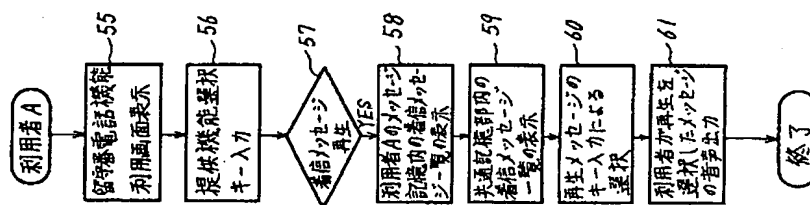 利用者A
留守番電話機能
利用画面表示
55
提供機能選択
キー入力
56
着信メッセージ
再生
57
YES
利用者Aのメッセージ
記憶内の着信メッセー
ジ一覧の表示
58
共通記憶部内の
着信メッセージ
一覧の表示
59
再生メッセージの
キー入力による
選択
60
利用者が再生を
選択したメッセージ
の音声出力
61
終了